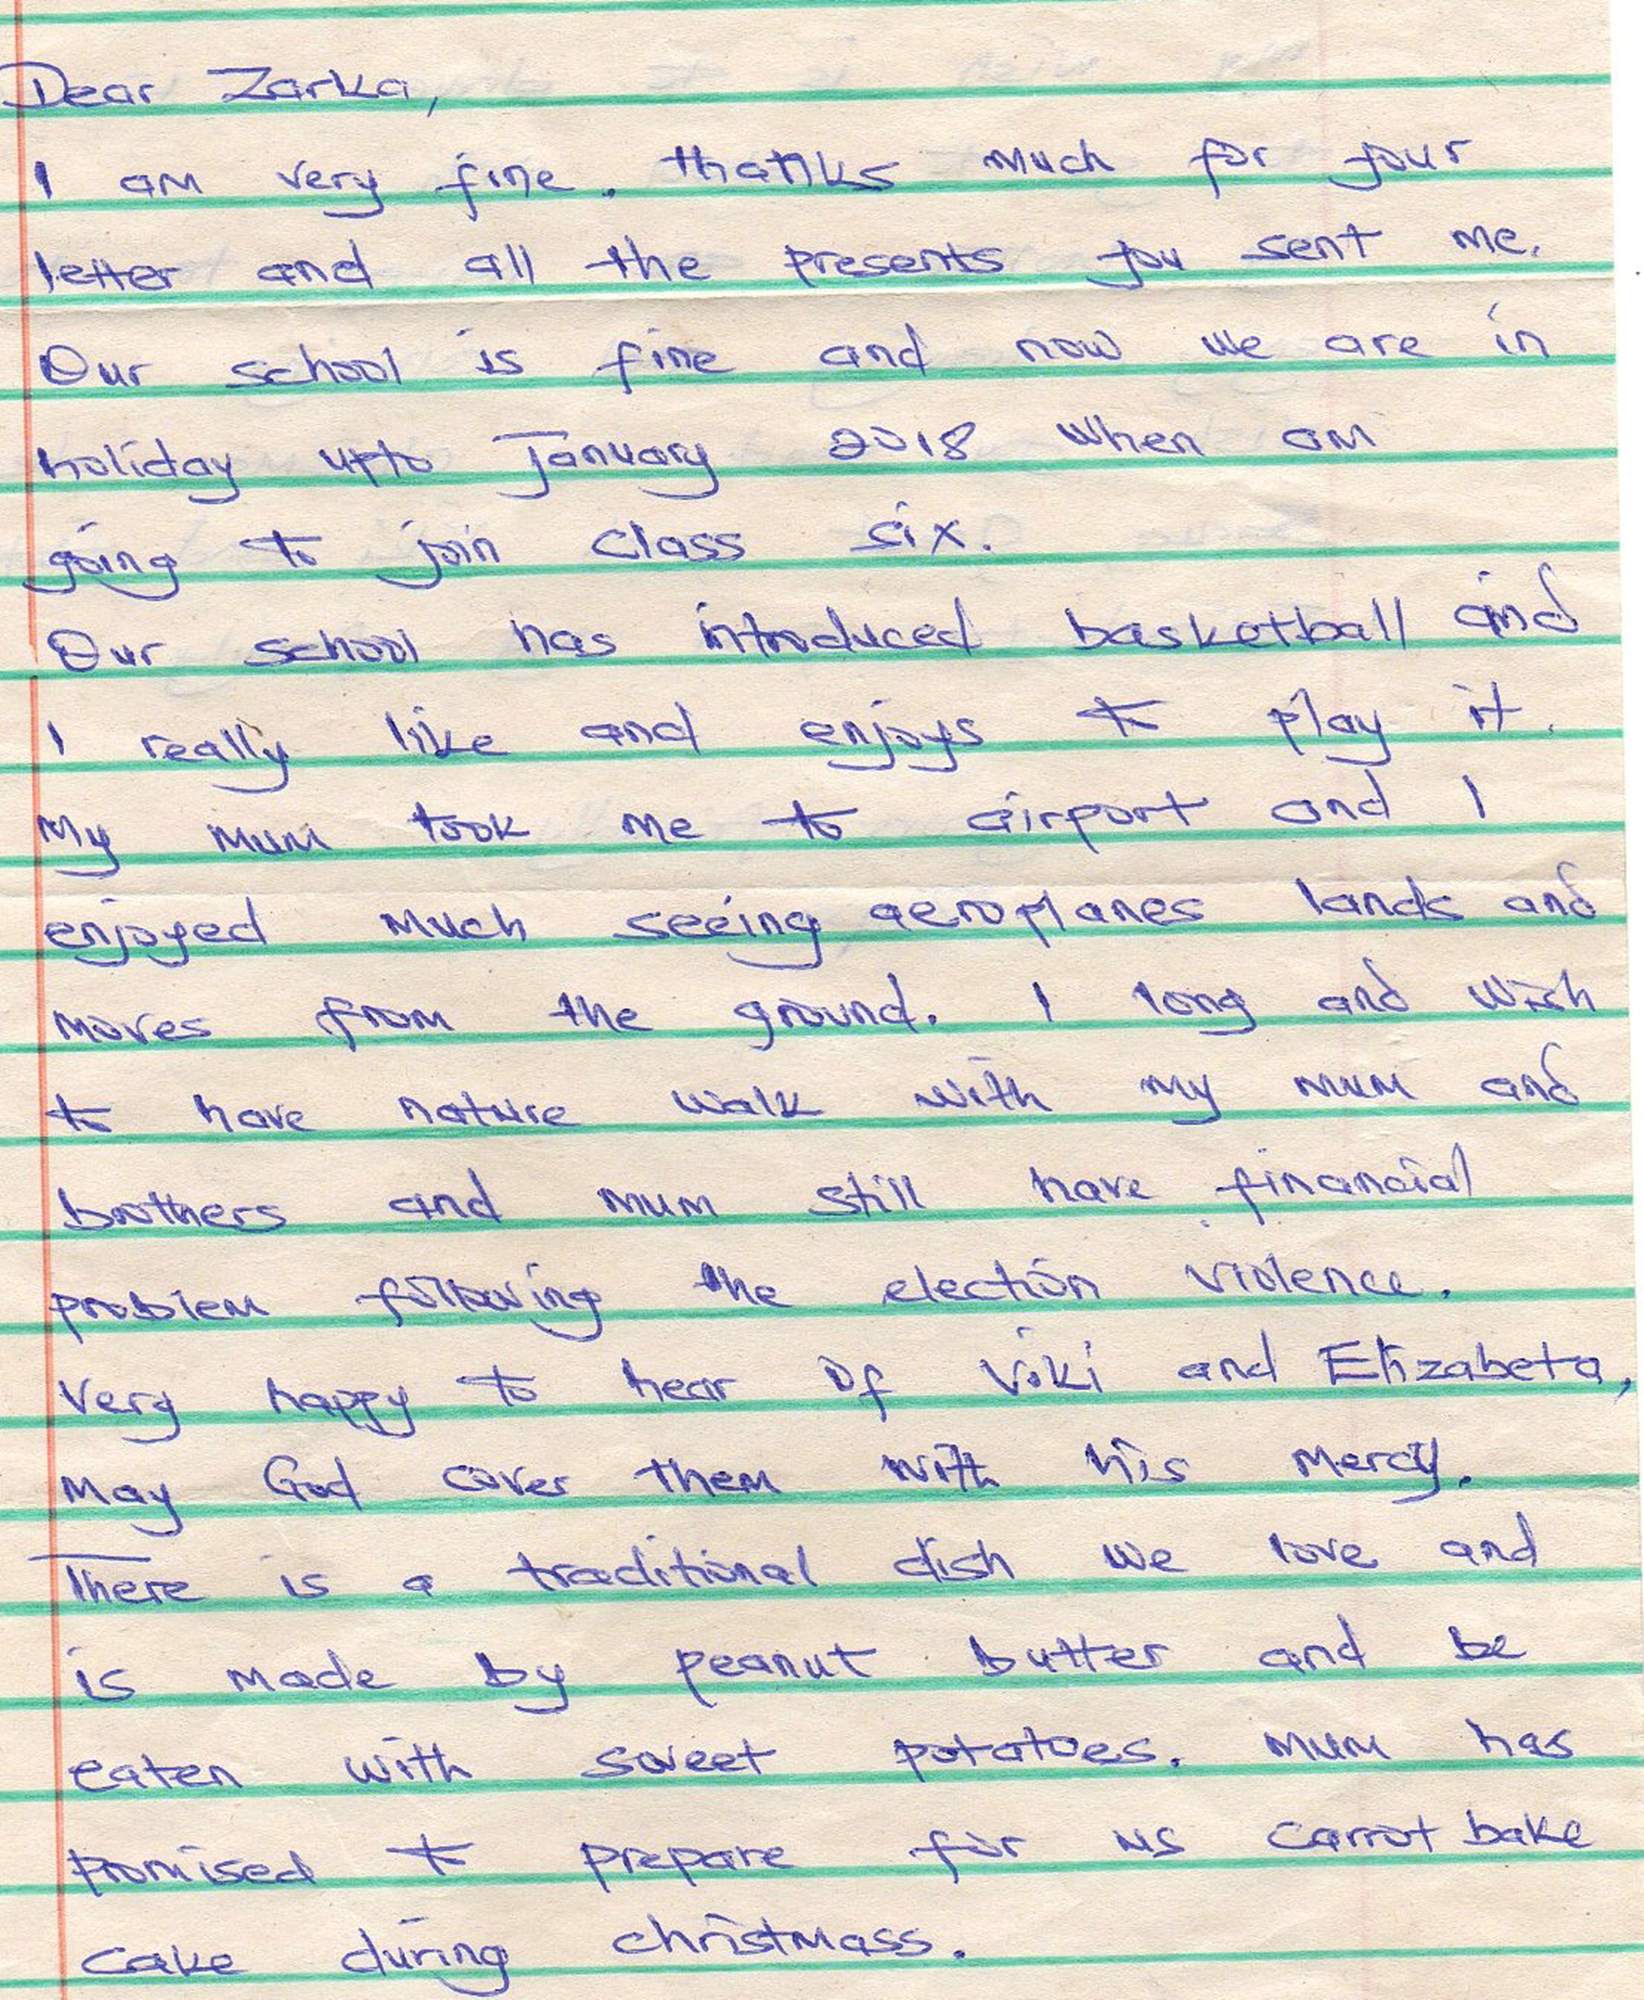 Dear Zarka,
I am very fine. thanks much for your
letter and all the presents you sent me.
Our school is fine and now we are in
holiday upto January 2018 when am
going to join class six.
Our school has introduced basketball and
I really like and enjoys to play it.
My mum took me to airport and I
enjoyed much seeing aeroplanes lands and
moves from the ground. I long and wish
to have nature walk with my mum and
brothers and mum still have financial
problem following the election violence.
Very happy to hear of Viki and Elizabeta,
may God cover them with his mercy.
There is a traditional dish we love and
is made by peanut butter and be
eaten with sweet potatoes. Mum has
promised to prepare for us carrot bake
cake during christmass.